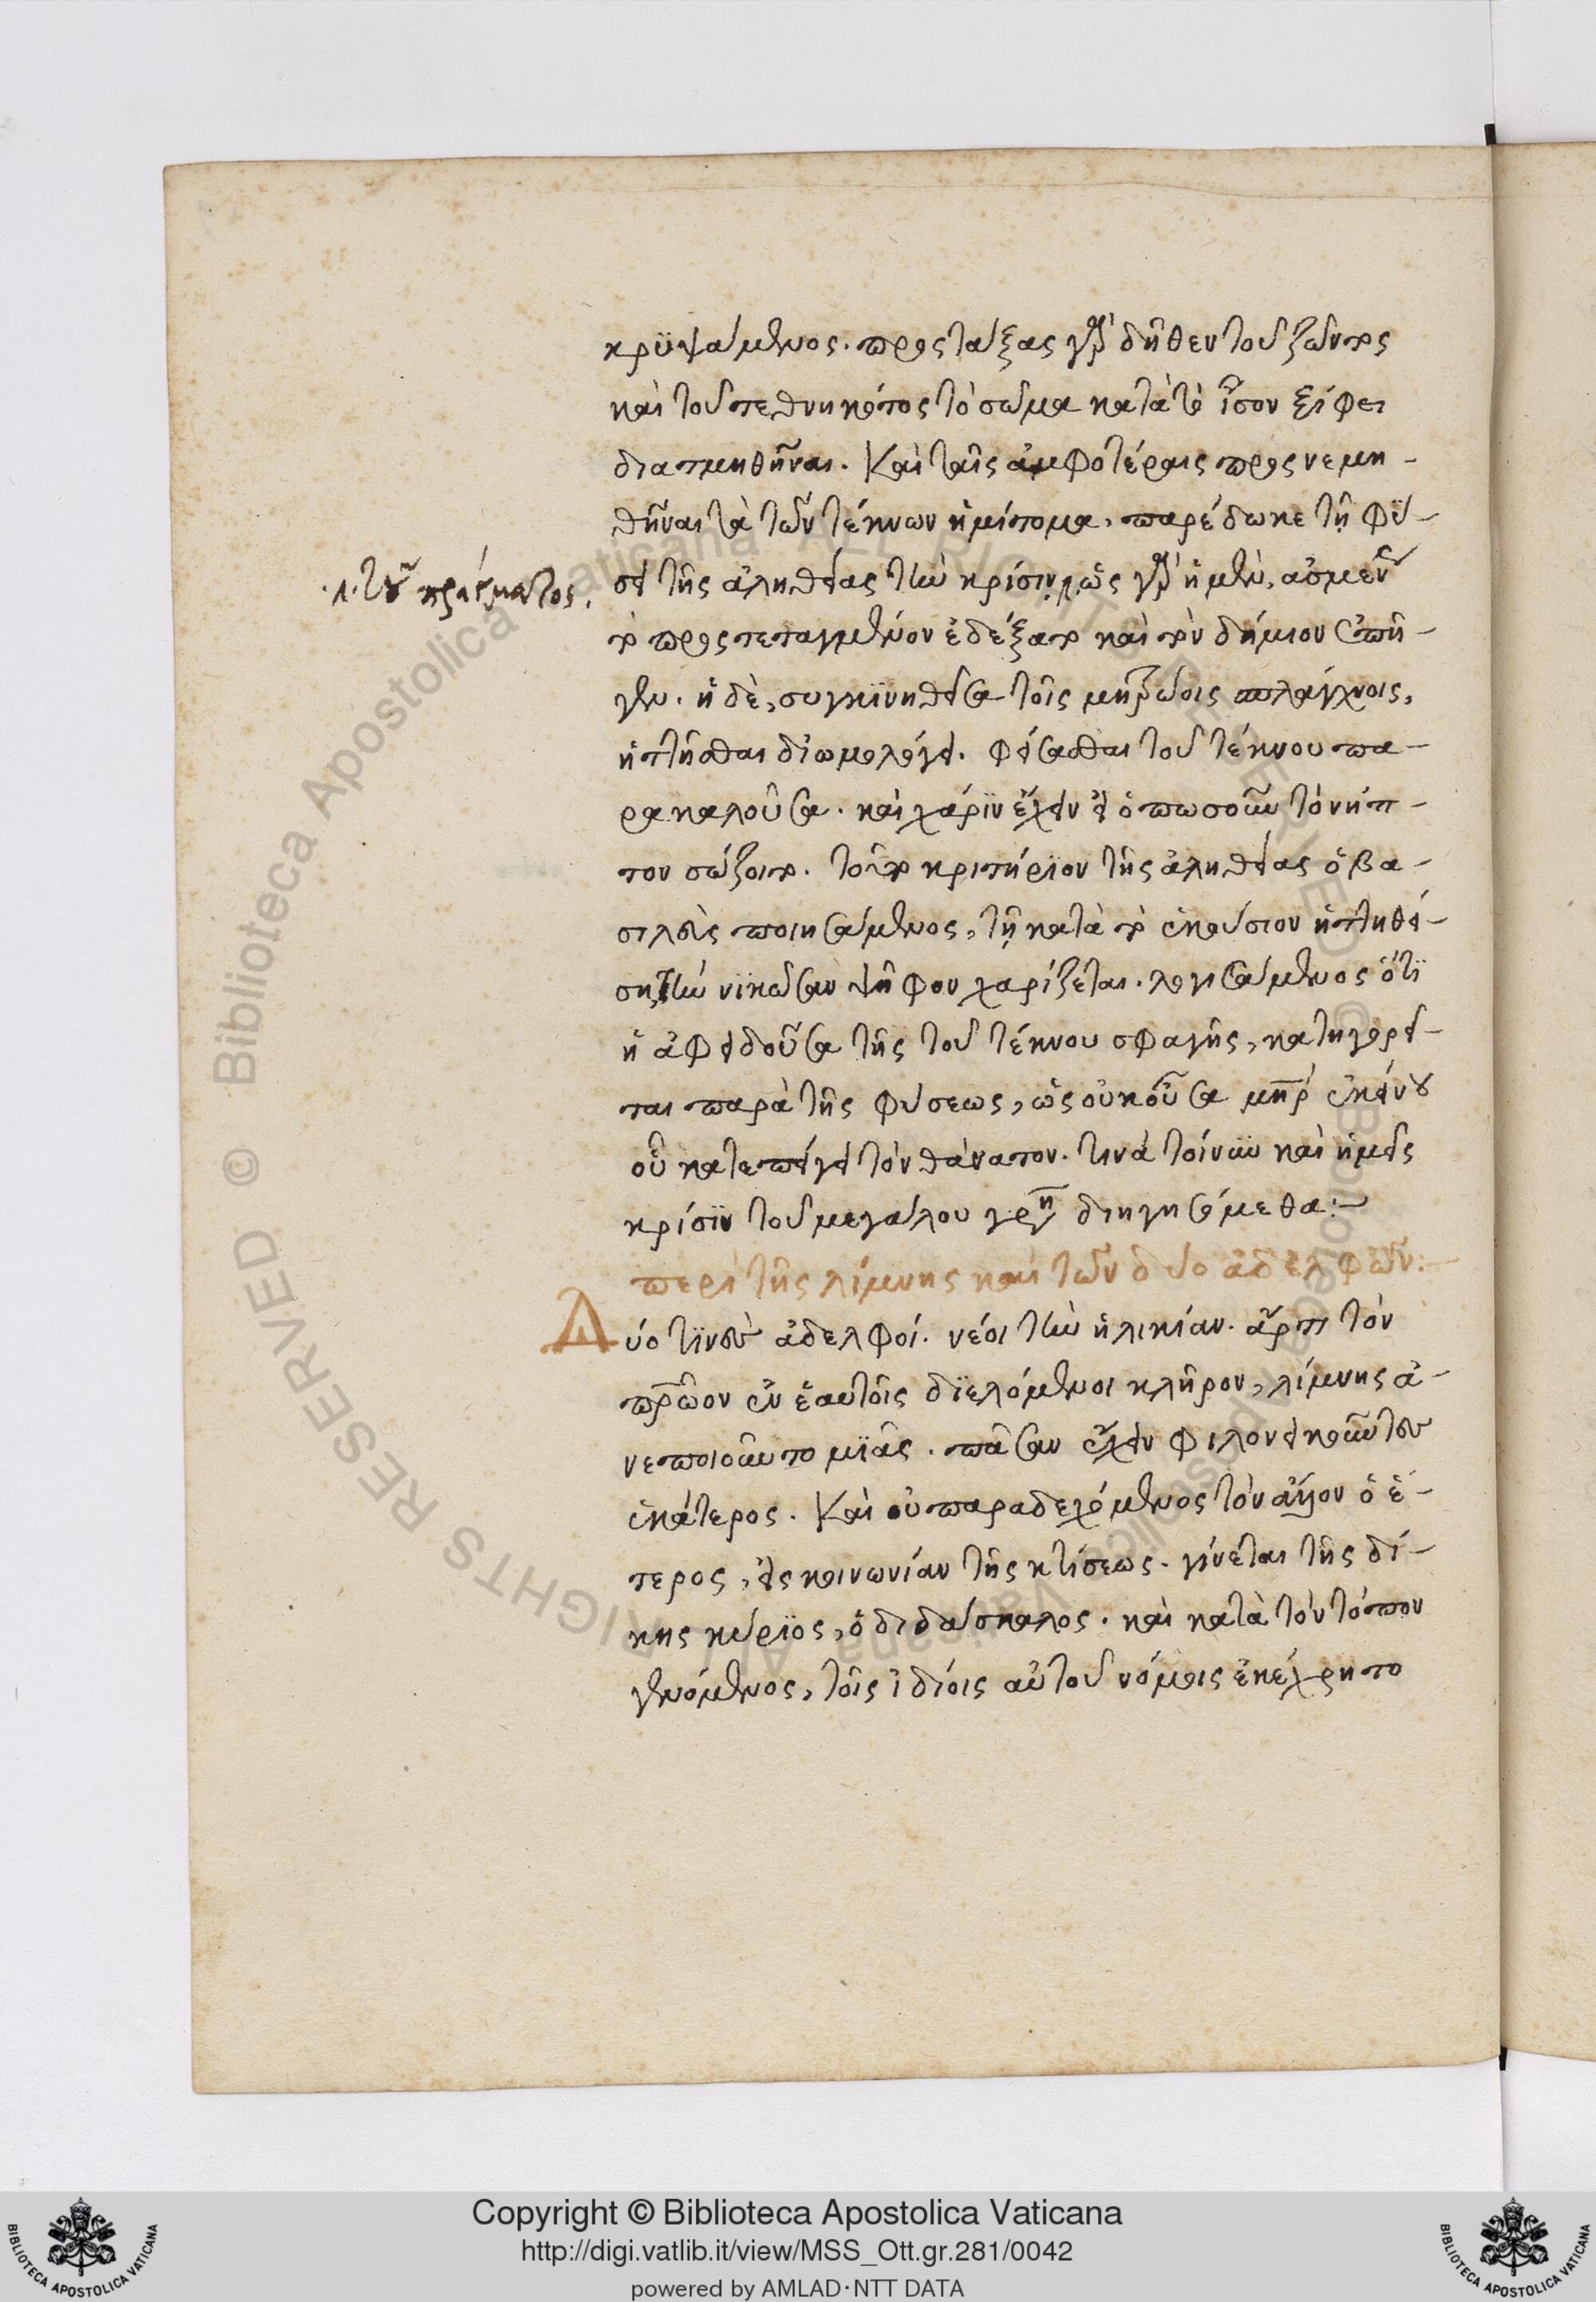 κρϋψάμενος. προςτάξας γὰρ δῆθεν τοῦ ζῶντος
καὶ τοῦ τεθνηκότος τὸ σῶμα κατὰ τὸ ἶσον ξίφει
διατμηθῆναι. Καὶ ταῖς ἀμφοτέραις προςνεμη-
θῆναι τὰ τῶν τέκνων ἡμίτομα, παρέδωκε τῇ φύ-
.λ. τοῦ πράγματος.
σει τῆς ἀληθείας τὴν κρίσιν, ὡς γὰρ ἡ μὲν, ἀσμένως
τὸ προςτεταγμένον ἐδέξατο καὶ τὸν δήμιον ἐπῄ-
νει. ἡ δὲ, συγκϊνηθεῖσα τοῖς μητρῴοις σπλάγχνοις,
ἡττῆσθαι διωμολόγει. φείσασθαι τοῦ τέκνου πα-
ρακαλοῦσα. καὶ χάρϊν ἔχειν εἰ ὁπωσοῦν τὸ νήπι-
ον σώζοιτο. τοῦτο κριτήρϊον τῆς ἀληθείας ὁ βα-
σιλεὺς ποιησάμενος, τῇ κατὰ τὸ ἑκούσιον ἡττηθεί-
σῃ τὴν νϊκῶσαν ψῆφον χαρίζεται. λογισάμενος ὅτϊ
ἡ ἀφειδοῦσα τῆς τοῦ τέκνου σφαγῆς, κατηγορεῖ-
ται παρὰ τῆς φύσεως, ὡς οὐκ οὖσα μήτηρ ἐκείνου
οὗ κατεπείγει τὸν θάνατον. τινὰ τοίνϋν καὶ ἡμεῖς
κρίσϊν τοῦ μεγάλου γρη διηγησόμεθα:-
περὶ τῆς λίμνης καὶ τῶν δύο ἀδελφῶν:-
Δύο τϊνὲς ἀδελφοὶ. νέοι τὴν ἡλικίαν. ἄρτι τὸν
πατρῷον ἐν ἑαυτοῖς δϊελόμενοι κλῆρον, λίμνης ἀ-
νεποιοῦντο μϊᾶς. πᾶσαν ἔχειν φιλονεικοῦντες
ἑκάτερος. Καὶ οὐ παραδεχόμενος τὸν ἄλλον ὁ ἕ-
τερος, εἰς κοινωνίαν τῆς κτίσεως. γίνεται τῆς δί-
κης κύρϊος, ὁ διδάσκαλος. καὶ κατὰ τὸν τόπον
γενόμενος, τοῖς ἰδίοις αὐτοῦ νόμοις ἐκέχρητο
Copyright © Biblioteca Apostolica Vaticana
http://digi.vatlib.it/view/MSS_Ott.gr.281/0042
powered by AMLAD·NTT DATA